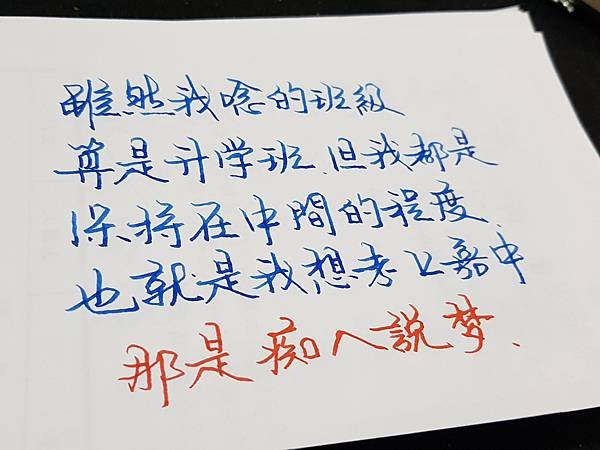 雖然我唸的班級
算是升学班、但我都是
保持在中間的程度、
也就是我想考上嘉中
那是痴人說梦、